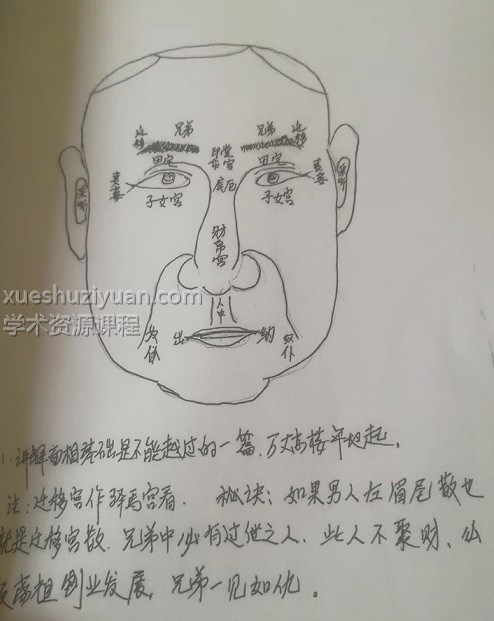 迁移 兄弟 兄弟 迁移
田宅 印堂 命宫 田宅
妻妾 疾厄 妻妾
子女宫 子女宫
财帛宫
xueshuziyuan.com
学术资源课程
人中
奴仆 出 纳 奴仆
1. 讲解面相基础是不能越过的一篇,万丈高楼平地起。
注:迁移宫作驿马宫看. 秘诀:如果男人左眉尾散也
就是迁移宫散.兄弟中必有过世之人.此人不聚财、
创业发展,兄弟一见如仇。